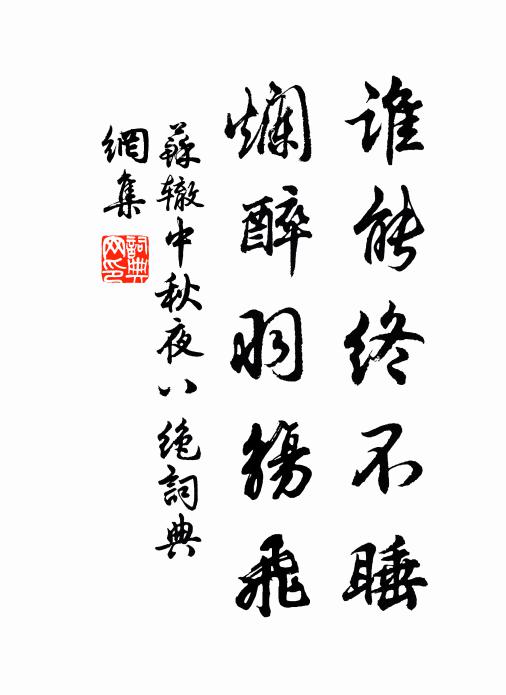 誰能終不睡
爛醉羽觴飛
蘇轍中秋夜八絕詞典
網集
詞典
网印